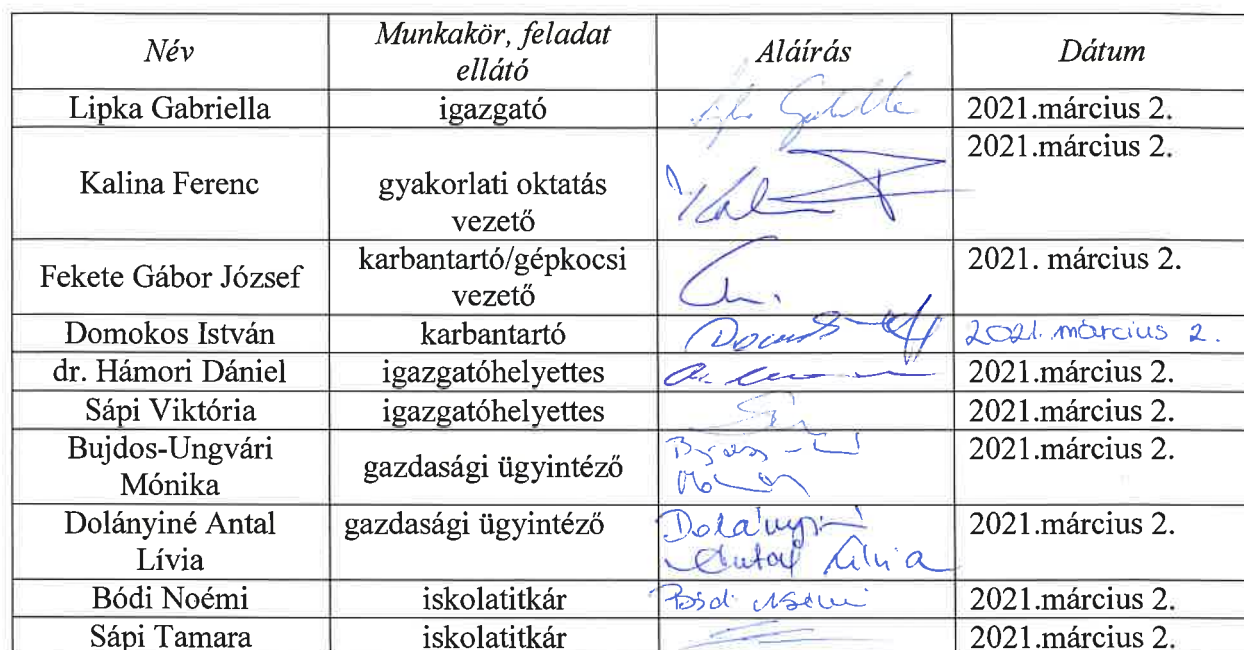 Név Munkakör, feladat ellátó Aláírás Dátum
Lipka Gabriella igazgató 2021.március 2.
Kalina Ferenc gyakorlati oktatás vezető 2021.március 2.
Fekete Gábor József karbantartó/gépkocsi vezető 2021. március 2.
Domokos István karbantartó 2021. március 2.
dr. Hámori Dániel igazgatóhelyettes 2021.március 2.
Sápi Viktória igazgatóhelyettes 2021.március 2.
Bujdos-Ungvári Mónika gazdasági ügyintéző 2021.március 2.
Dolányiné Antal Lívia gazdasági ügyintéző Dolányiné Antal Lívia 2021.március 2.
Bódi Noémi iskolatitkár Bódi Noémi 2021.március 2.
Sápi Tamara iskolatitkár 2021.március 2.